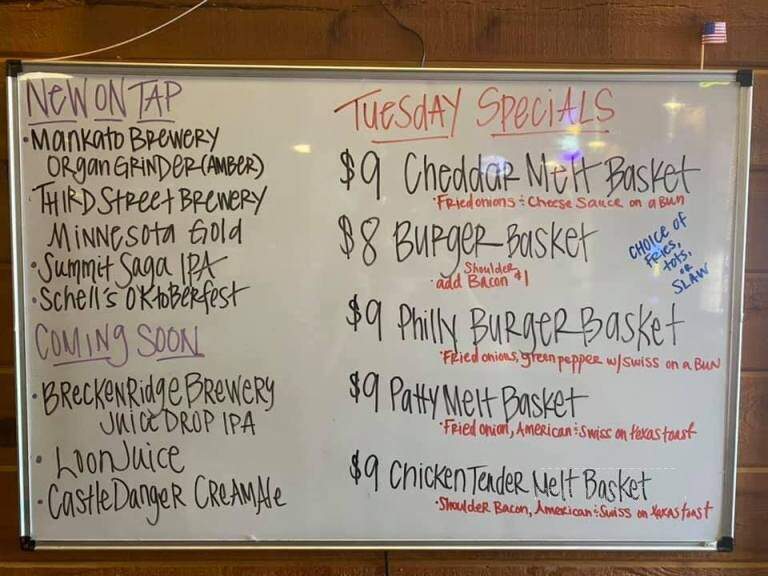 New on Tap
• Mankato Brewery
Organ Grinder (Amber)
• Third Street Brewery
Minnesota Gold
• Summit Saga IPA
• Schell's Oktoberfest
Coming Soon
• Breckenridge Brewery
Juice Drop IPA
• Loon Juice
• Castle Danger Cream Ale
Tuesday Specials
$9 Cheddar Melt Basket
• Fried onions & Cheese Sauce on a Bun
$8 Burger Basket
Shoulder
• add Bacon $1
Choice of
Fries,
tots,
or
Slaw
$9 Philly Burger Basket
• Fried onions, green pepper w/ Swiss on a Bun
$9 Patty Melt Basket
• Fried onion, American & Swiss on texas toast
$9 Chicken Tender Melt Basket
• Shoulder Bacon, American & Swiss on texas toast